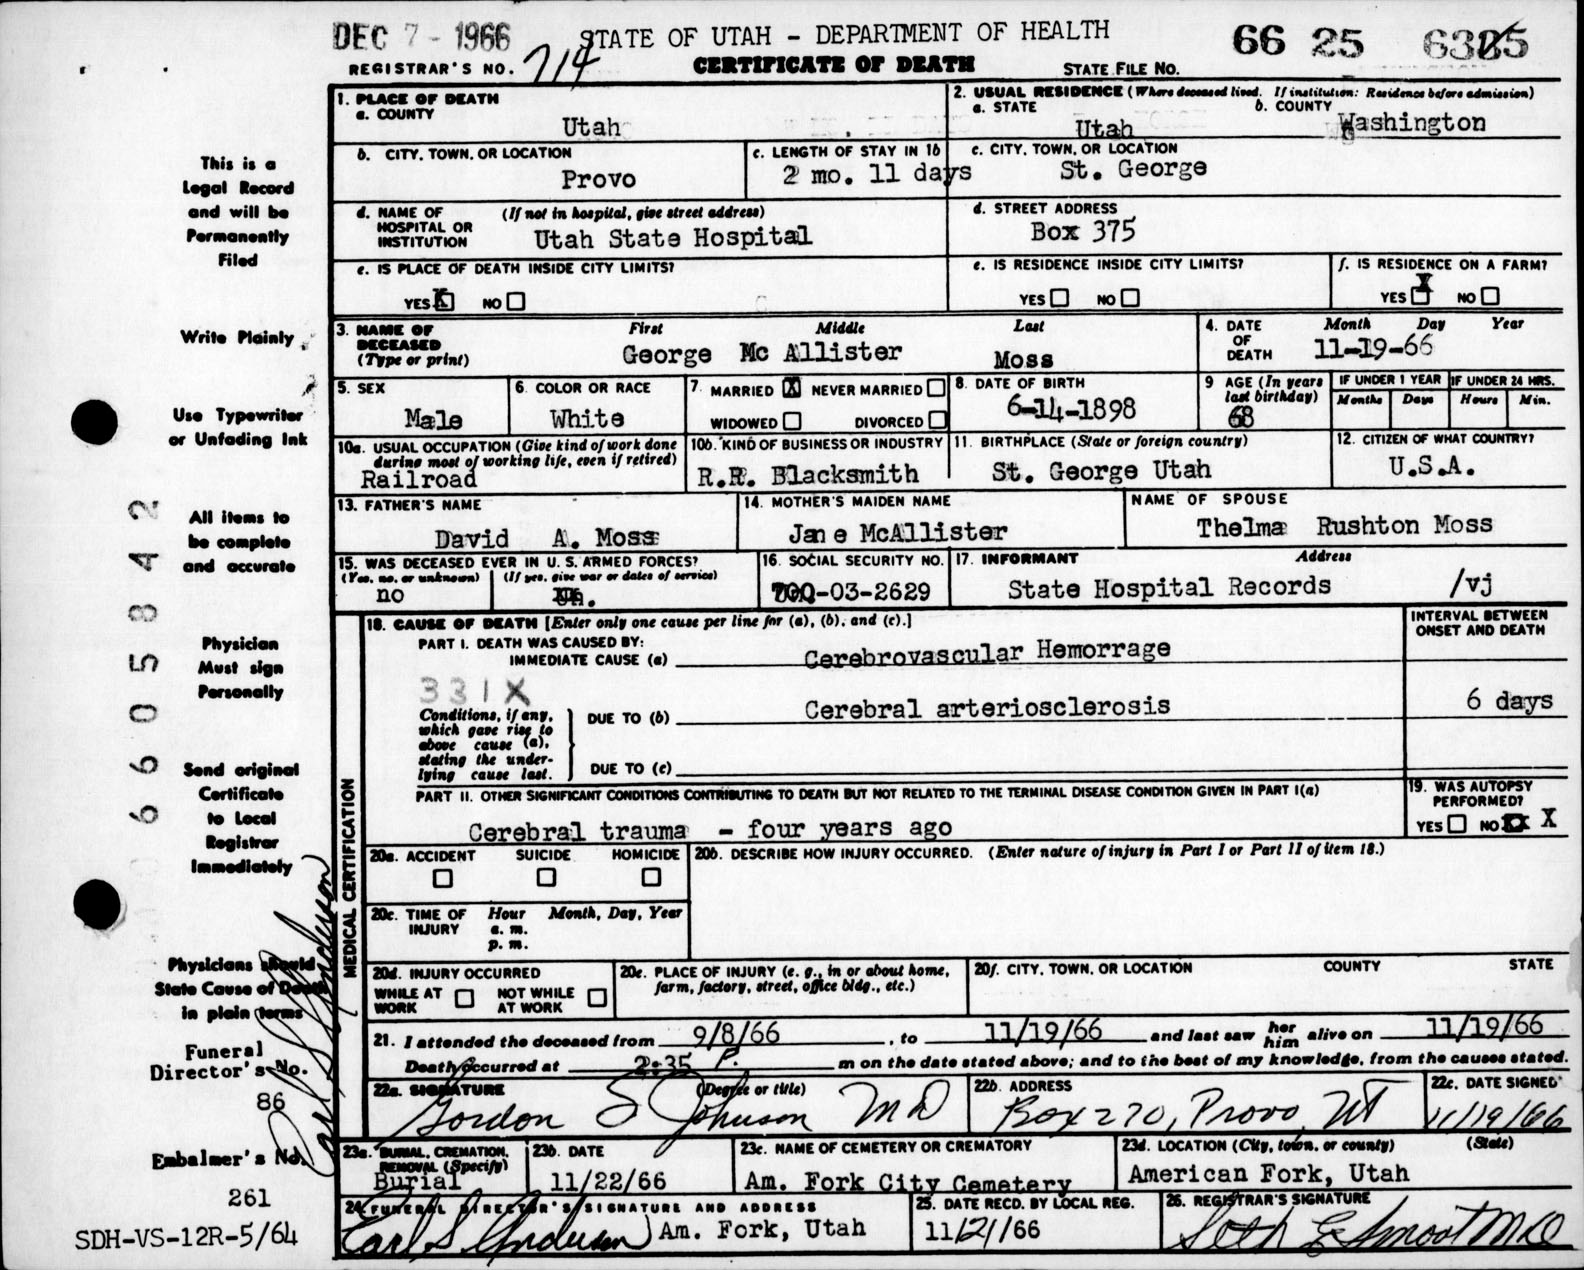 DEC 7 - 1966
STATE OF UTAH - DEPARTMENT OF HEALTH
66 25
REGISTRAR'S NO. 714
CERTIFICATE OF DEATH
STATE FILE NO.
This is a
Legal Record
and will be
Permanently
Filed
Write Plainly
Use Typewriter
or Unfading Ink
All items to
be complete
and accurate
Physician
Must sign
Personally
Send original
Certificate
to Local
Registrar
Immediately
Physicians should
State Cause of Death
in plain terms
Funeral
Director's No.
86
Embalmer's No.
261
SDH-VS-12R-5/64
6605842
Earl S Anderson
1. PLACE OF DEATH
a. COUNTY
Utah
2. USUAL RESIDENCE (Where deceased lived. If institution: Residence before admission)
a. STATE
Utah
b. COUNTY
Washington
b. CITY, TOWN, OR LOCATION
Provo
c. LENGTH OF STAY IN 1b
2 mo. 11 days
c. CITY, TOWN, OR LOCATION
St. George
d. NAME OF HOSPITAL OR INSTITUTION
(If not in hospital, give street address)
Utah State Hospital
d. STREET ADDRESS
Box 375
e. IS PLACE OF DEATH INSIDE CITY LIMITS?
YES X NO
e. IS RESIDENCE INSIDE CITY LIMITS?
YES NO
f. IS RESIDENCE ON A FARM?
YES X NO
3. NAME OF DECEASED (Type or print)
First Middle Last
George Mc Allister Moss
4. DATE OF DEATH
Month Day Year
11-19-66
5. SEX
Male
6. COLOR OR RACE
White
7. MARRIED X NEVER MARRIED
WIDOWED DIVORCED
8. DATE OF BIRTH
6-14-1898
9 AGE (In years last birthday)
68
IF UNDER 1 YEAR
Months Days
IF UNDER 24 HRS.
Hours Min.
10a. USUAL OCCUPATION (Give kind of work done during most of working life, even if retired)
Railroad
10b. KIND OF BUSINESS OR INDUSTRY
R.R. Blacksmith
11. BIRTHPLACE (State or foreign country)
St. George Utah
12. CITIZEN OF WHAT COUNTRY?
U.S.A.
13. FATHER'S NAME
David A. Moss
14. MOTHER'S MAIDEN NAME
Jane McAllister
NAME OF SPOUSE
Thelma Rushton Moss
15. WAS DECEASED EVER IN U. S. ARMED FORCES?
(Yes, no, or unknown)
no
(If yes, give war or dates of service)
16. SOCIAL SECURITY NO.
700-03-2629
17. INFORMANT Address
State Hospital Records /vj
MEDICAL CERTIFICATION
18. CAUSE OF DEATH [Enter only one cause per line for (a), (b), and (c).]
INTERVAL BETWEEN ONSET AND DEATH
PART I. DEATH WAS CAUSED BY:
IMMEDIATE CAUSE (a) Cerebrovascular Hemorrage
331X
Conditions, if any, which gave rise to above cause (a), stating the underlying cause last.
DUE TO (b) Cerebral arteriosclerosis
6 days
DUE TO (c)
PART II. OTHER SIGNIFICANT CONDITIONS CONTRIBUTING TO DEATH BUT NOT RELATED TO THE TERMINAL DISEASE CONDITION GIVEN IN PART I(a)
Cerebral trauma - four years ago
19. WAS AUTOPSY PERFORMED?
YES NO X
20a. ACCIDENT SUICIDE HOMICIDE
20b. DESCRIBE HOW INJURY OCCURRED. (Enter nature of injury in Part I or Part II of item 18.)
20c. TIME OF INJURY
Hour Month, Day, Year
a. m.
p. m.
20d. INJURY OCCURRED
WHILE AT WORK
NOT WHILE AT WORK
20e. PLACE OF INJURY (e. g., in or about home, farm, factory, street, office bldg., etc.)
20f. CITY, TOWN, OR LOCATION COUNTY STATE
21. I attended the deceased from 9/8/66, to 11/19/66 and last saw her him alive on 11/19/66
Death occurred at 2:35 P. m on the date stated above; and to the best of my knowledge, from the causes stated.
22a. SIGNATURE (Degree or title)
Gordon S Johnson MD
22b. ADDRESS
Box 270, Provo, UT
22c. DATE SIGNED
11/19/66
23a. BURIAL, CREMATION, REMOVAL (Specify)
Burial
23b. DATE
11/22/66
23c. NAME OF CEMETERY OR CREMATORY
Am. Fork City Cemetery
23d. LOCATION (City, town, or county) (State)
American Fork, Utah
24. FUNERAL DIRECTOR'S SIGNATURE AND ADDRESS
Earl S Anderson Am. Fork, Utah
25. DATE RECD. BY LOCAL REG.
11/21/66
26. REGISTRAR'S SIGNATURE
Seth E Smoot MD